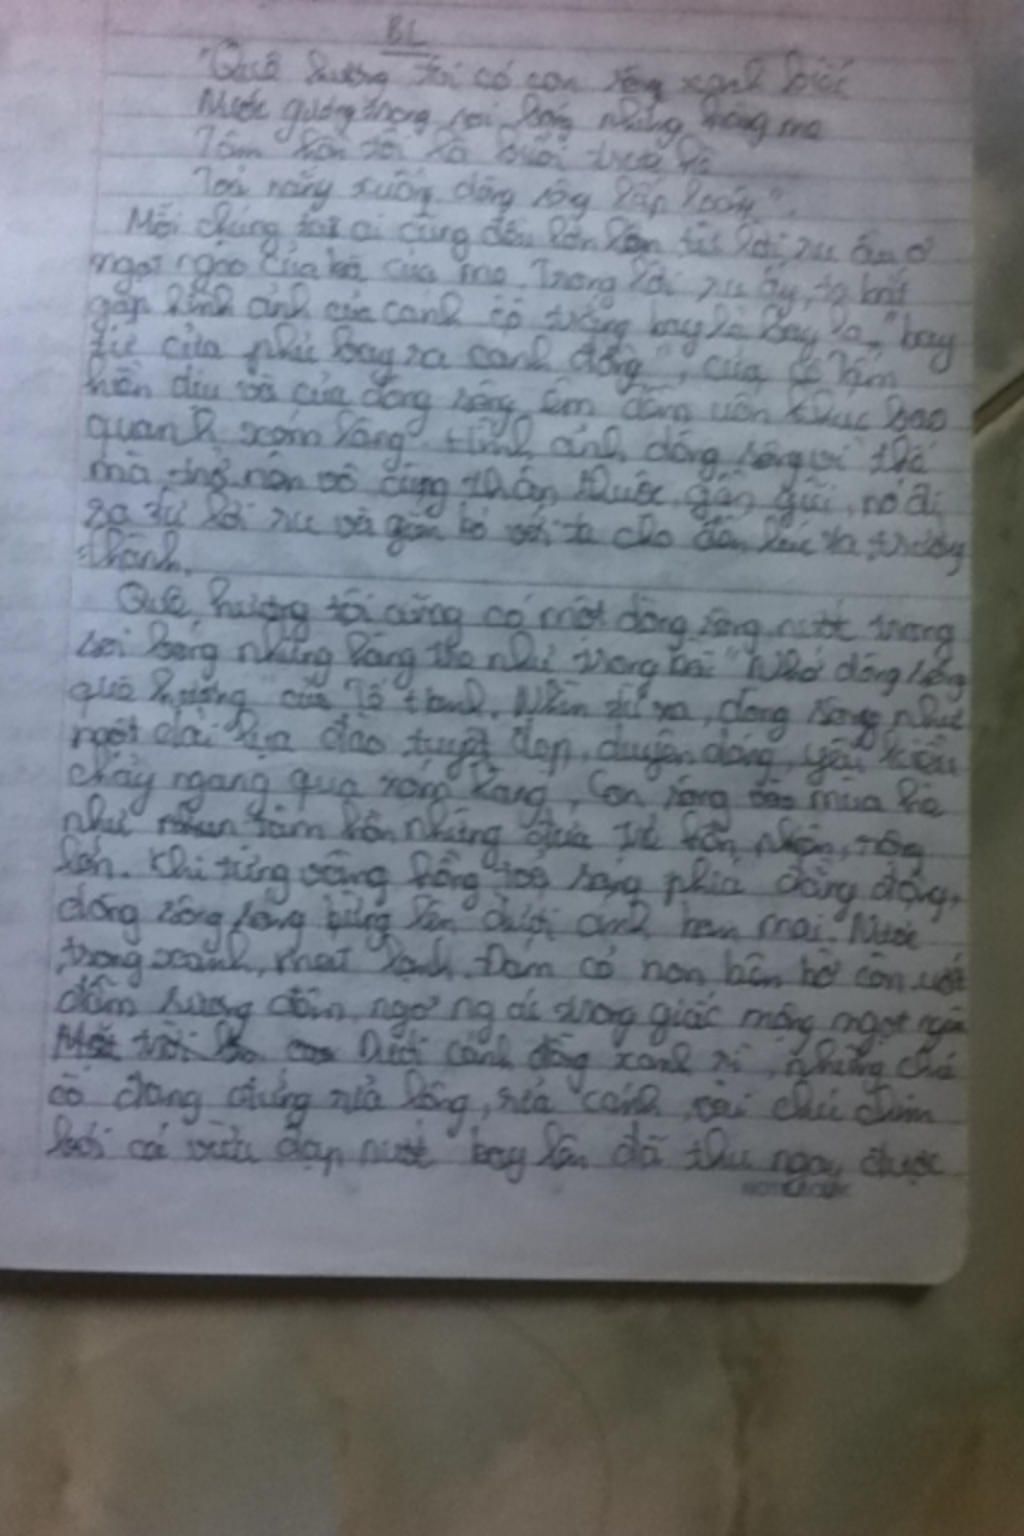 BL
"Quê hương tôi có con sông xanh biếc
Nước gương trong soi bóng những hàng tre
Tâm hồn tôi là buổi trưa hè
Toả nắng xuống dòng sông lấp loáng".
Mỗi chúng ta ai cũng đều lớn lên từ lời ru ầu ơ
ngọt ngào của bà của mẹ. Trong lời ru ấy, ta bắt
gặp hình ảnh của cánh cò trắng bay lả bay la, "bay
từ cửa phủ bay ra cánh đồng", của cô Tấm
hiền dịu và của dòng sông êm đềm uốn khúc bao
quanh xóm làng. Hình ảnh dòng sông vì thế
mà trở nên vô cùng thân thuộc, gần gũi, nó đi
ra từ lời ru và gắn bó với ta cho đến lúc ta trưởng
thành.
Quê hương tôi cũng có một dòng sông nước trong
soi bóng những hàng tre như trong bài "Nhớ dòng sông
quê hương" của Tế Hanh. Nhìn từ xa, dòng sông như
một dải lụa đào tuyệt đẹp, duyên dáng, yêu kiều
chảy ngang qua xóm làng. Con sông mùa hè
như tâm hồn những đứa trẻ hồn nhiên, rộng
lớn. Khi từng vầng hồng toả rạng phía đằng đông,
dòng sông bừng lên dưới ánh ban mai. Nước
trong xanh, mát lạnh. Đám cỏ non bên bờ còn ướt
đẫm sương đêm ngơ ngác trong giấc mộng ngọt ngào
Dưới cánh đồng xanh rì, những chú
cò đang đứng rỉa lông, rỉa cánh, vài chú chim
bói cá vừa đạp nước bay lên đã thu ngay được